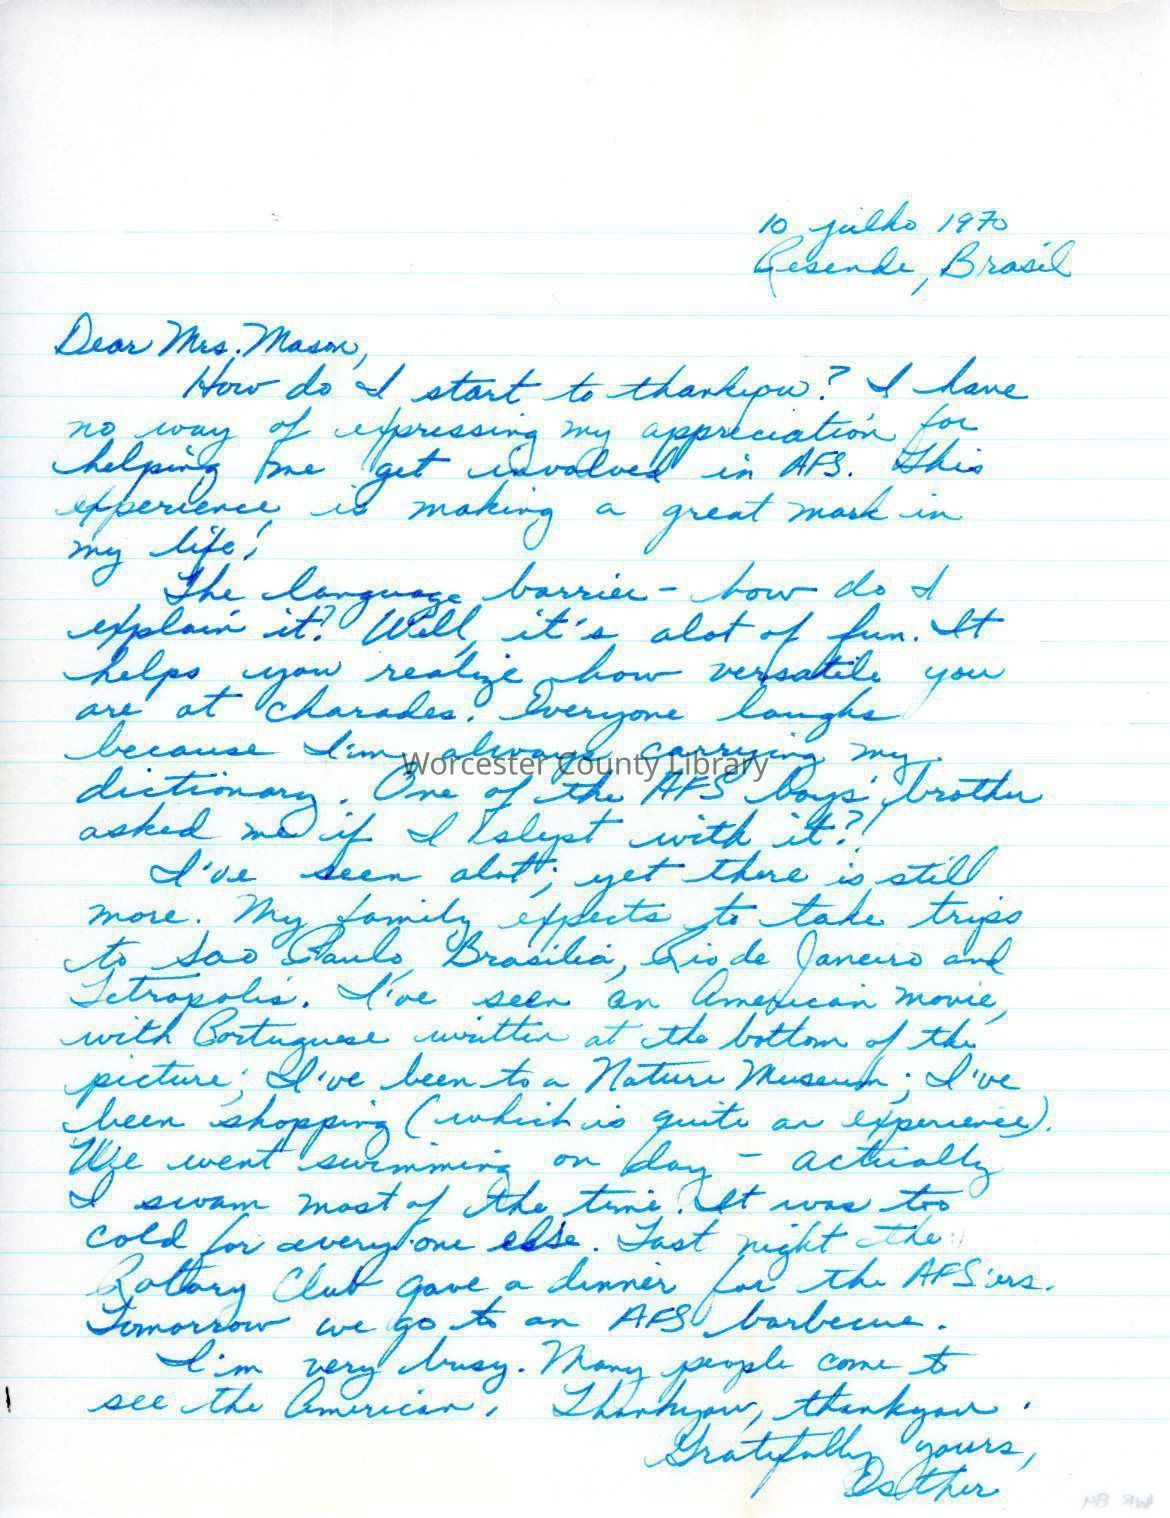 10 julho 1970
Resende, Brasil
Dear Mrs. Mason,
How do I start to thankyou? I have
no way of expressing my appreciation for
helping me get involved in AFS. This
experience is making a great mark in
my life!
The language barrier - how do I
explain it? Well, it's alot of fun. It
helps you realize how versatile you
are at charades. Everyone laughs
because I'm always carrying my
Worcester County Library
dictionary. One of the AFS boys' brother
asked me if I slept with it?!
I've seen alot; yet there is still
more. My family expects to take trips
to Sao Paulo, Brasilia, Rio de Janeiro and
Petropolis. I've seen an American movie,
with Portuguese written at the bottom of the
picture; I've been to a Nature Museum; I've
been shopping (which is quite an experience).
We went swimming on day - actually
I swam most of the time. It was too
cold for everyone else. Last night the
Rottary Club gave a dinner for the AFS'ers.
Tomorrow we go to an AFS barbecue.
I'm very busy. Many people come to
see the American. Thankyou, thankyou.
Gratefully yours,
Esther